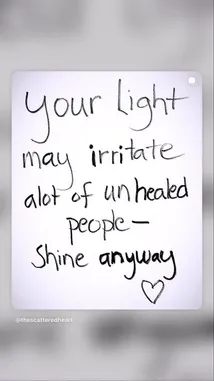 Your light
may irritate
alot of unhealed
people—
Shine anyway
@thescatteredheart